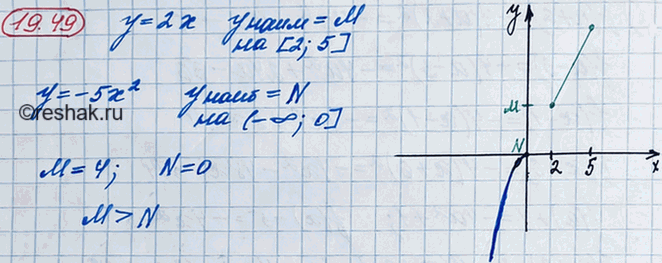 19.49 y = 2x y наим = M
на [2; 5]
y = -5x² y наиб = N
на (-∞; 0]
©reshak.ru
M = 4; N = 0
M > N
y
M
N
2 5 x